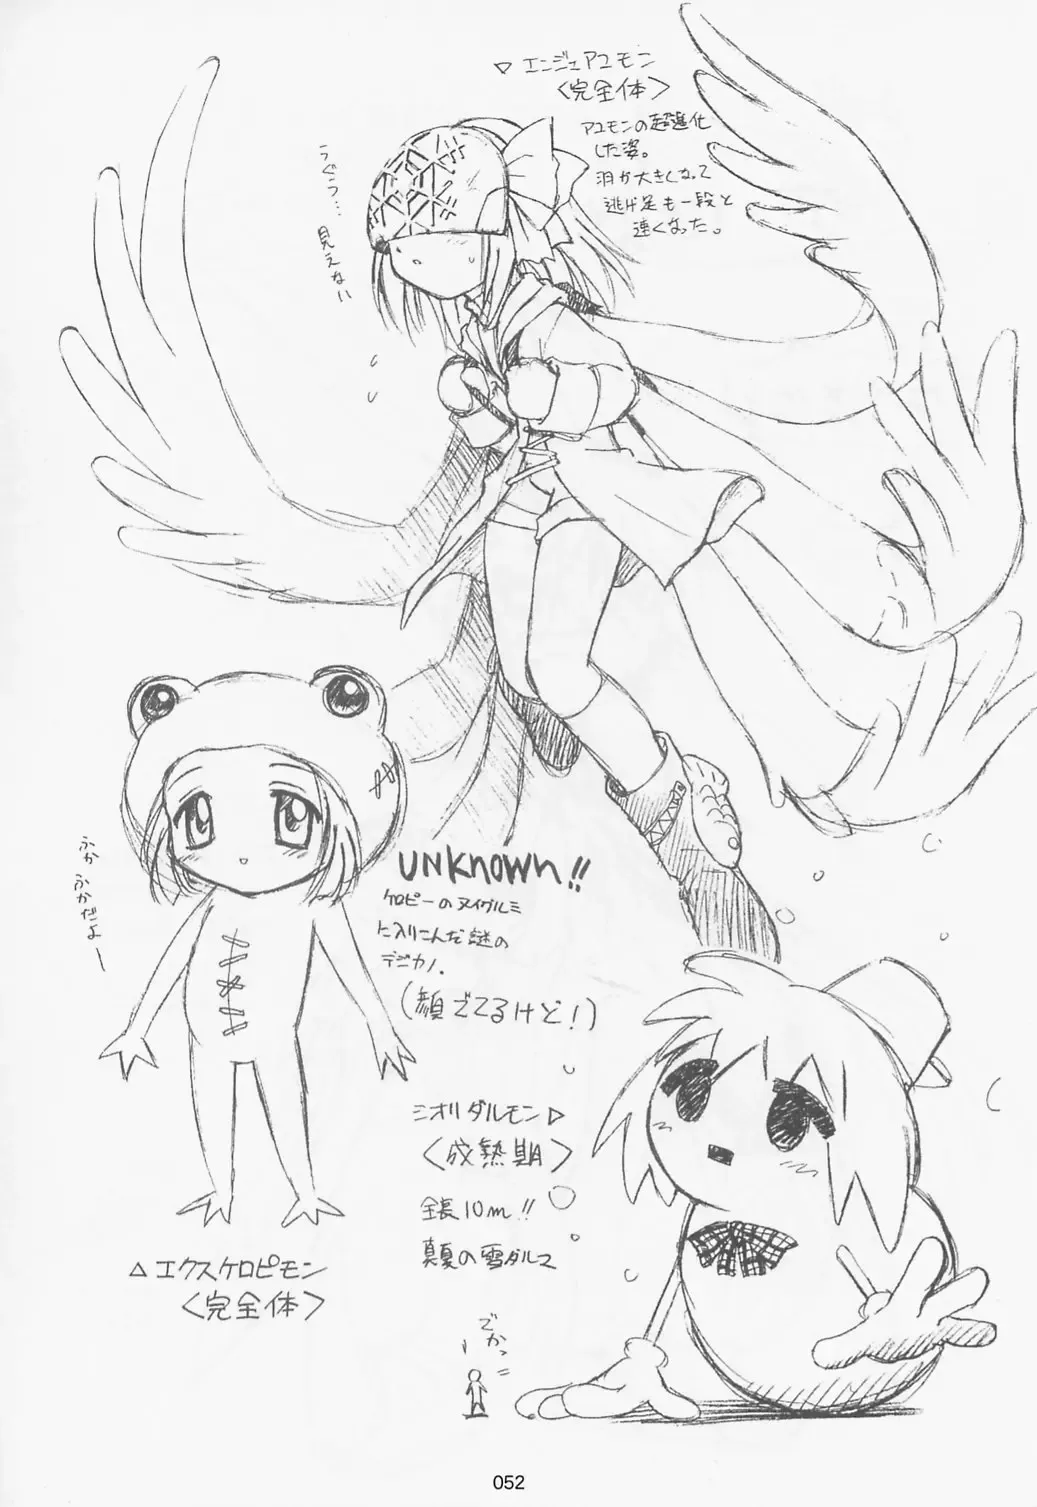 ▽ エンジェアユモン
〈完全体〉
アユモンの超進化
した姿。
羽が大きくなって
逃げ足も一段と
速くなった。
うぐぅ…
見えない
UNKNOWN!!
ケロピーのヌイグルミ
に入りこんだ謎の
デジカノ.
(顔でてるけど!)
ふか ふかだよー
△エクスケロピモン
〈完全体〉
シオリダルモン▷
〈成熟期〉
全長10m!!
真夏の雪ダルマ
でかっ
052